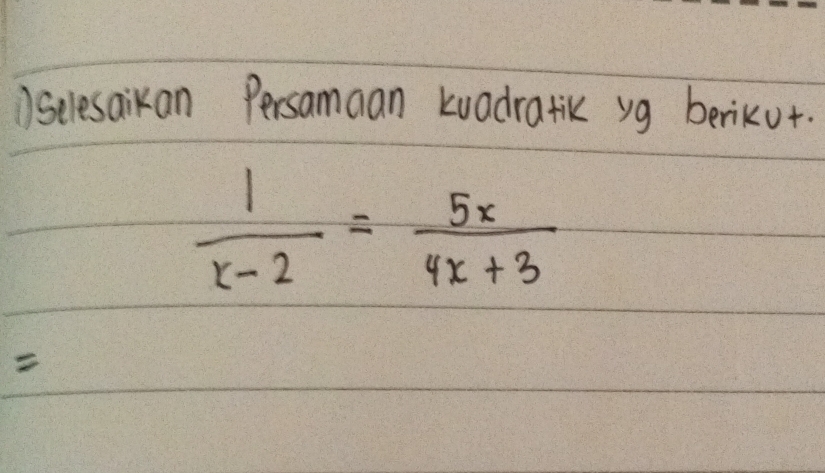 1) Selesaikan Persamaan kuadratik yg berikut.
1/(x-2) = 5x/(4x+3)
=